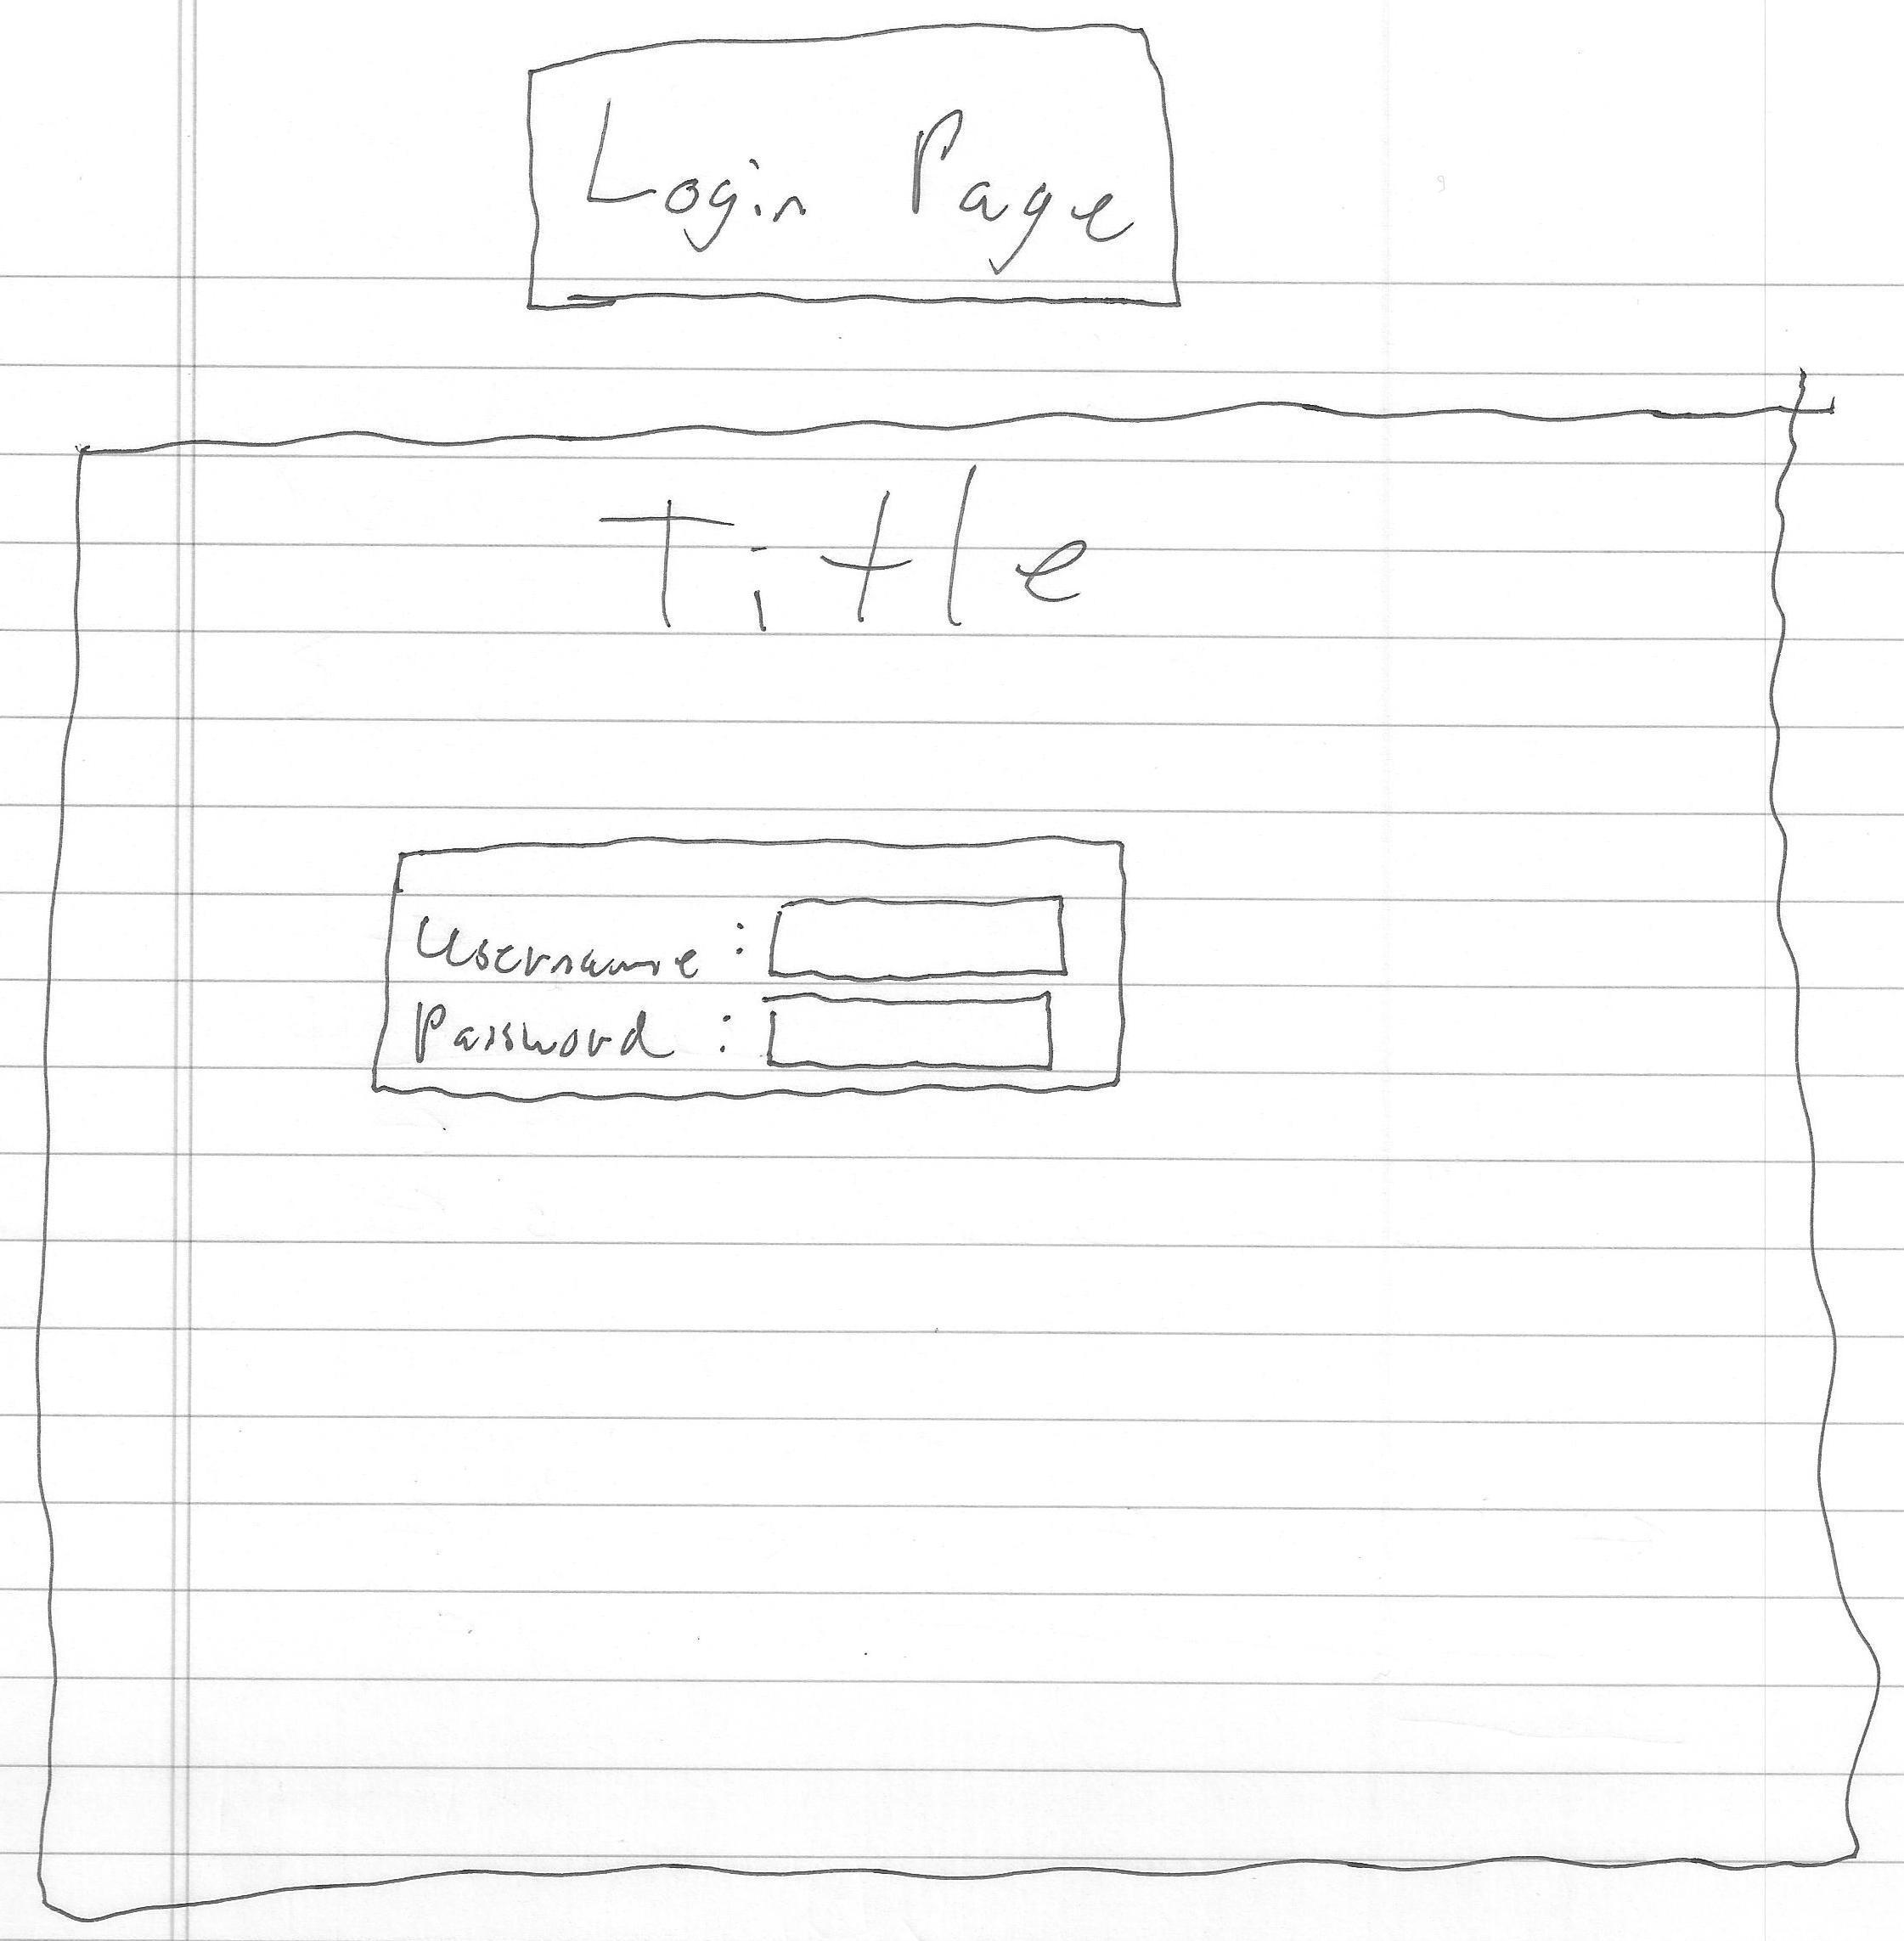 Login Page
Title
Username :
Password :